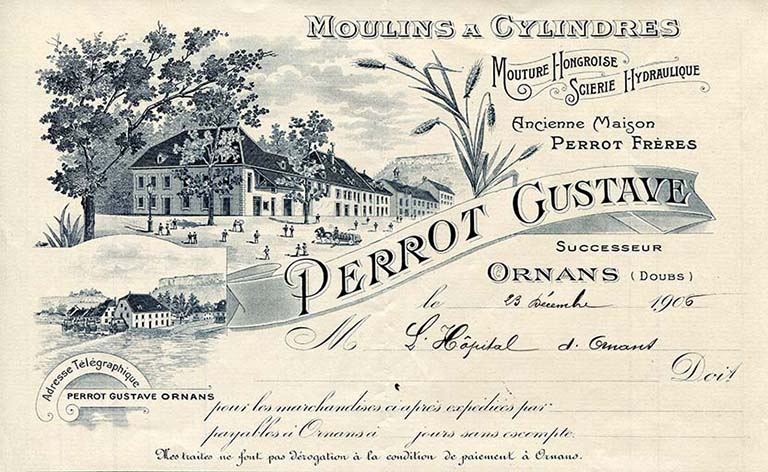 MOULINS A CYLINDRES
MOUTURE HONGROISE
SCIERIE HYDRAULIQUE
Ancienne Maison
PERROT FRÈRES
PERROT GUSTAVE
SUCCESSEUR
ORNANS (DOUBS)
le 23 Décembre 1906
M L'Hôpital d. Ornans
Doit
Adresse Télégraphique
PERROT GUSTAVE ORNANS
pour les marchandises ci après expédiées par
payables à Ornans à jours sans escompte.
Mes traites ne font pas dérogation à la condition de paiement à Ornans.